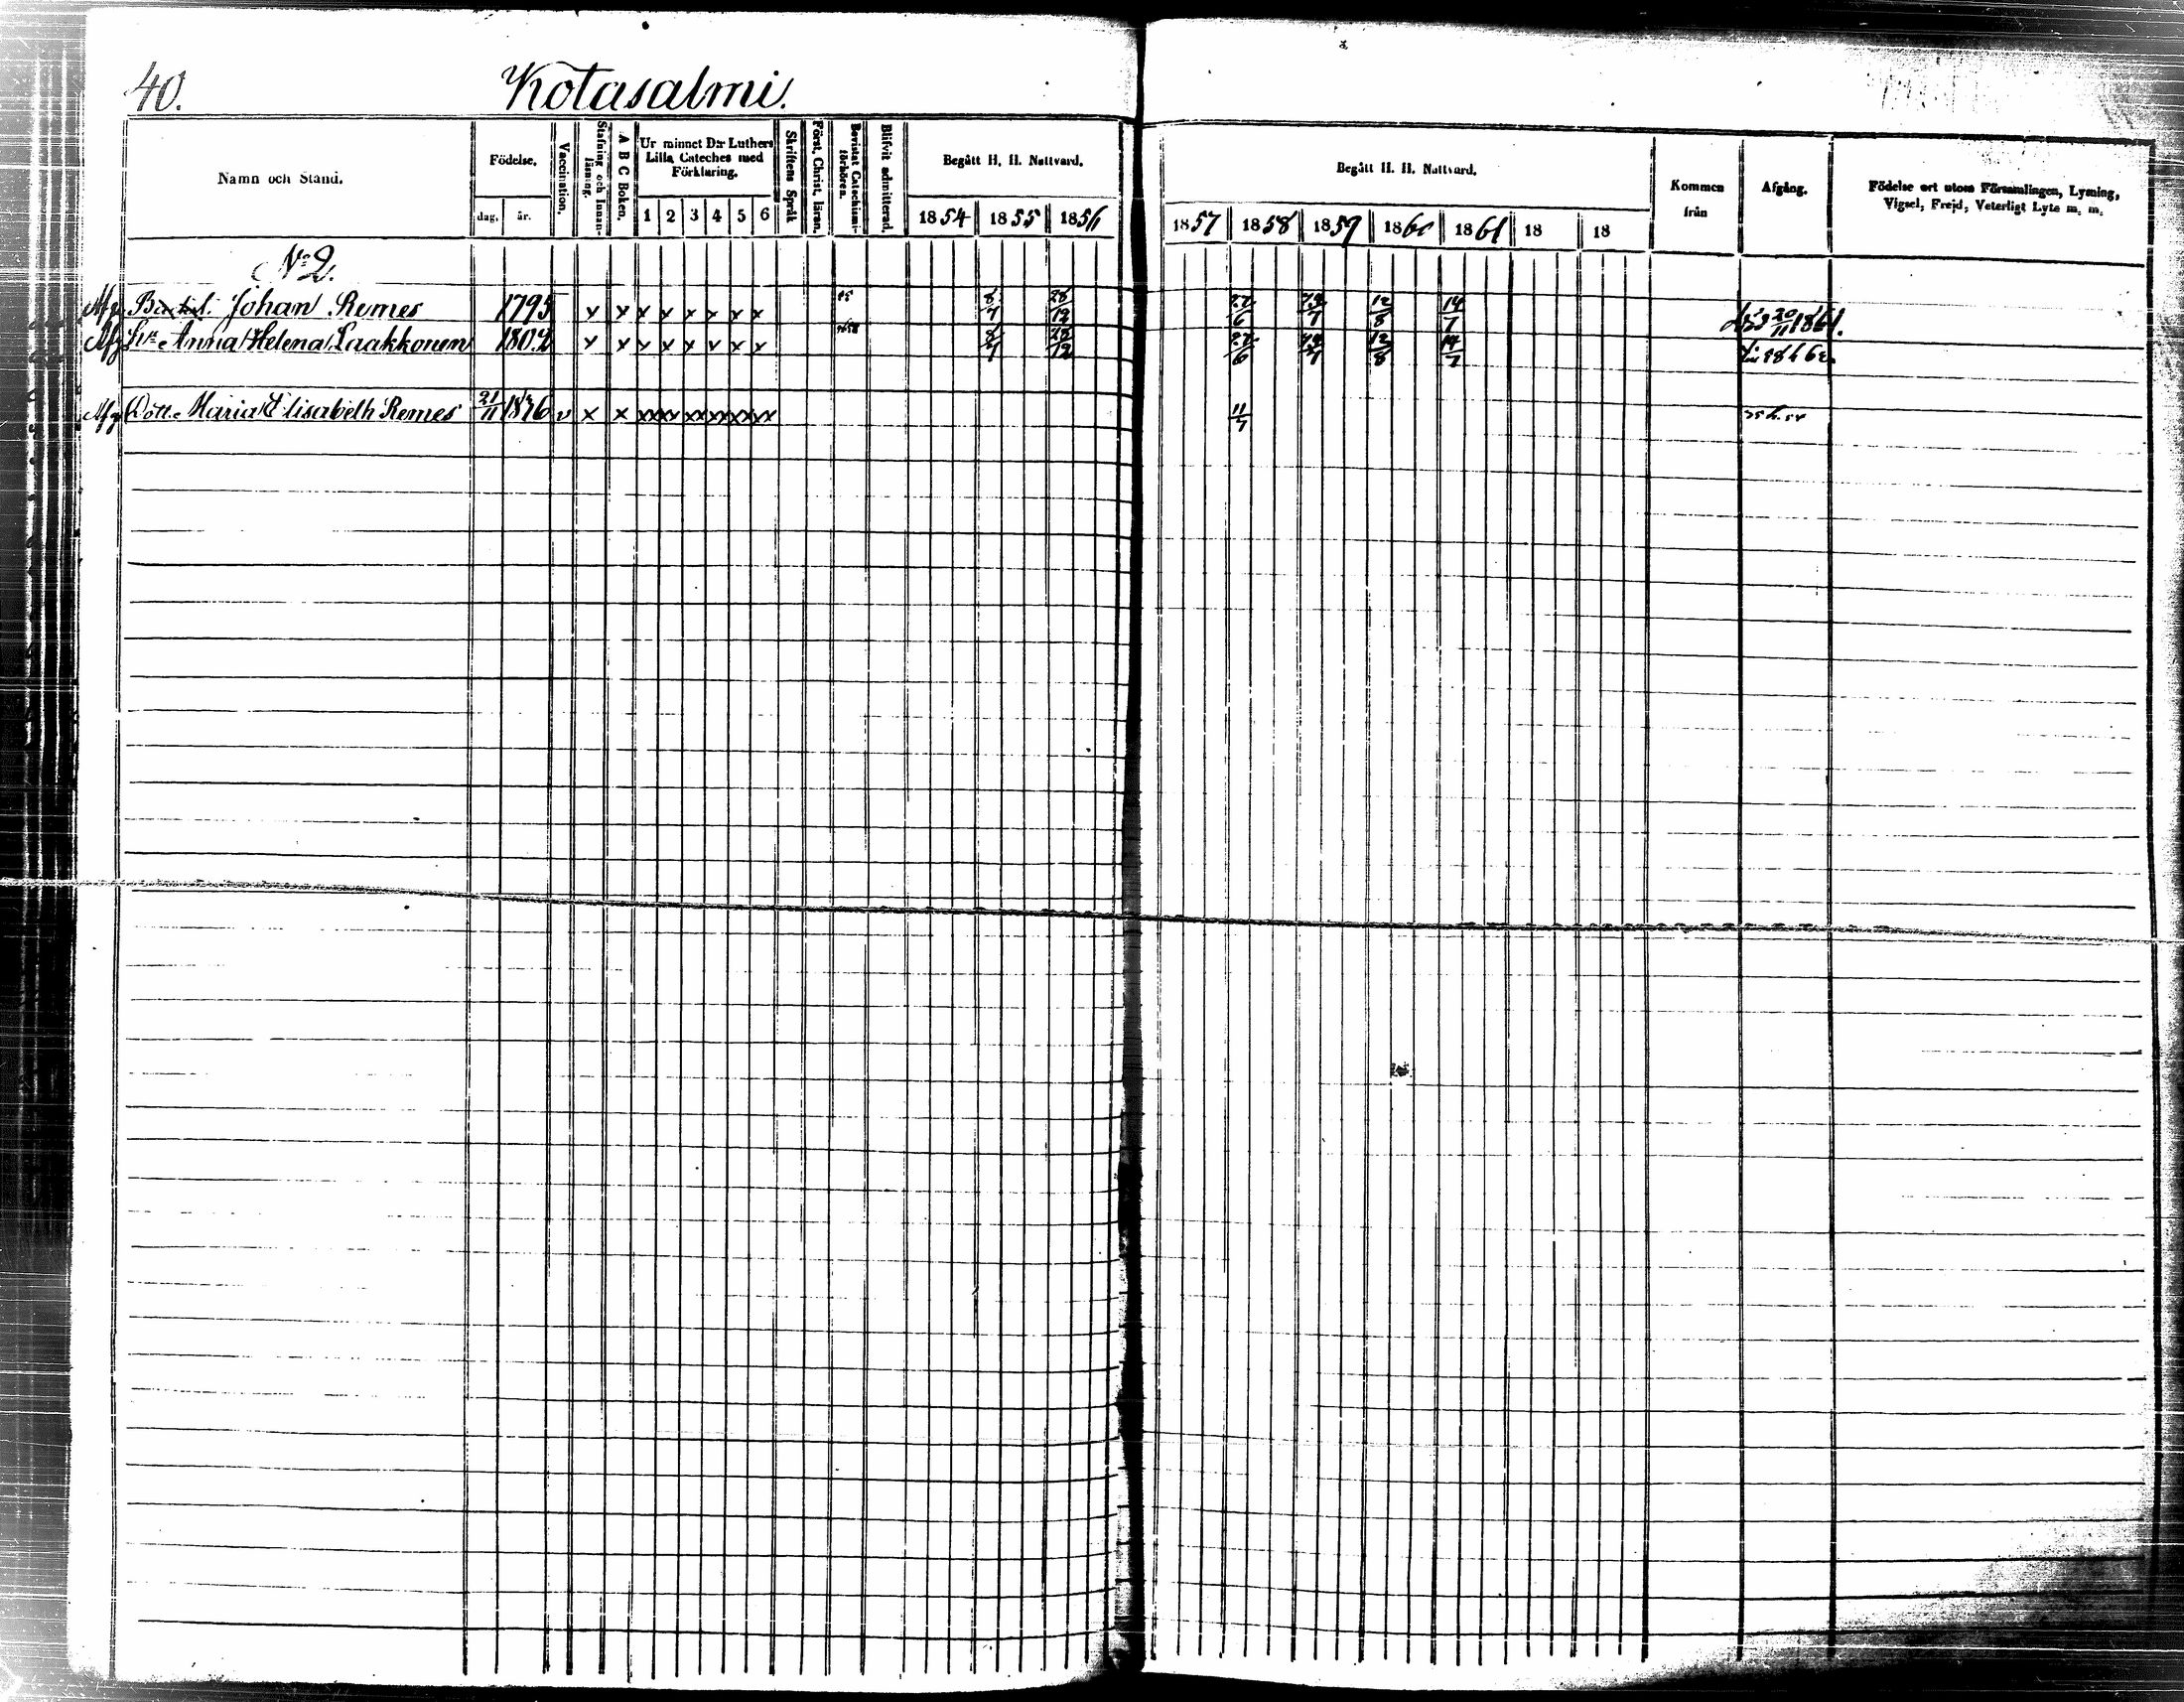 40. Kotasalmi.
Namn och Stånd. Födelse. dag. år. Vaccination. Stafning och Innan-läsning. A B C Boken. Ur minnet D:r Luthers Lilla Cateches med Förklaring. 1 2 3 4 5 6 Skriftens Språk Först. Christ. läran. Bevistat Catechismi-förhören. Blifvit admitterad. Begått H. H. Nattvard. 1854 1855 1856
Begått H. H. Nattvard. 1857 1858 1859 1860 1861 18 18 Kommen från Afgång. Födelse ort utom Församlingen, Lysning, Vigsel, Frejd, Veterligt Lyte m. m.
No 2.
Afg Johan Remes 1795 x x x x x x x x 8/7 28/12 27/6 12/8 14/7 20/11 1861.
Afg Anna Helena Laakkonen 1802 x x x x x v x x 8/7 28/12 27/6 12/8 14/7
Afg Dott. Maria Elisabeth Remes 21/11 1836 v x x xx xx xx xx xx xx 11/7